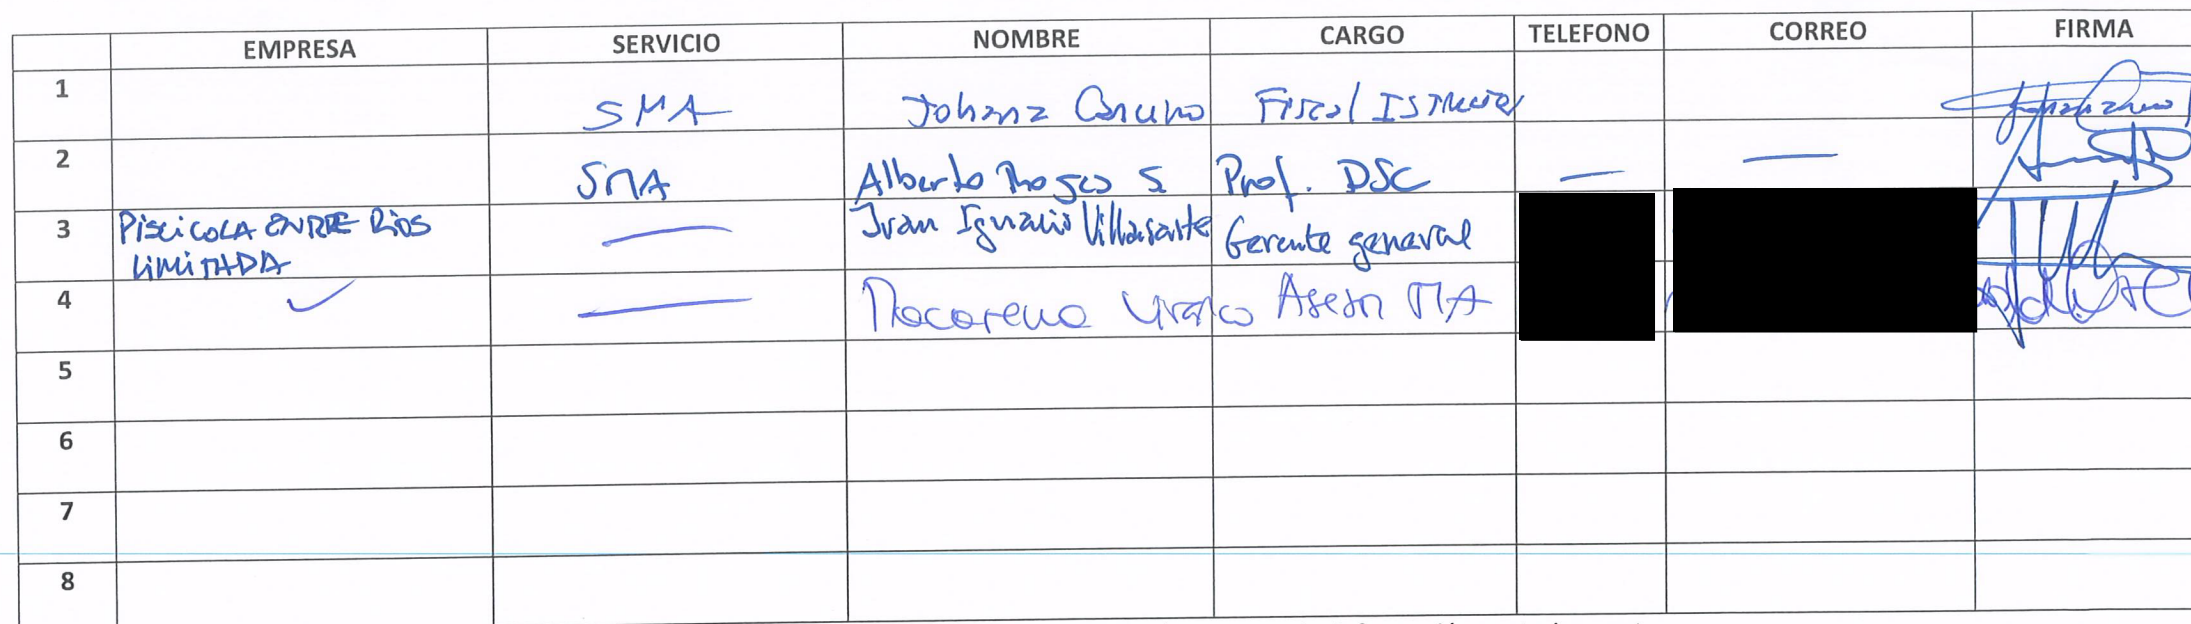 EMPRESA SERVICIO NOMBRE CARGO TELEFONO CORREO FIRMA
1 SMA Johana Cancino Fiscal Instructor
2 SMA Alberto Rojas S. Prof. DSC — —
3 PisciCOLA ENTRE Rios LIMITADA — Juan Ignacio Villasante Gerente general
4 ✓ — Macarena Asesor MA
5
6
7
8